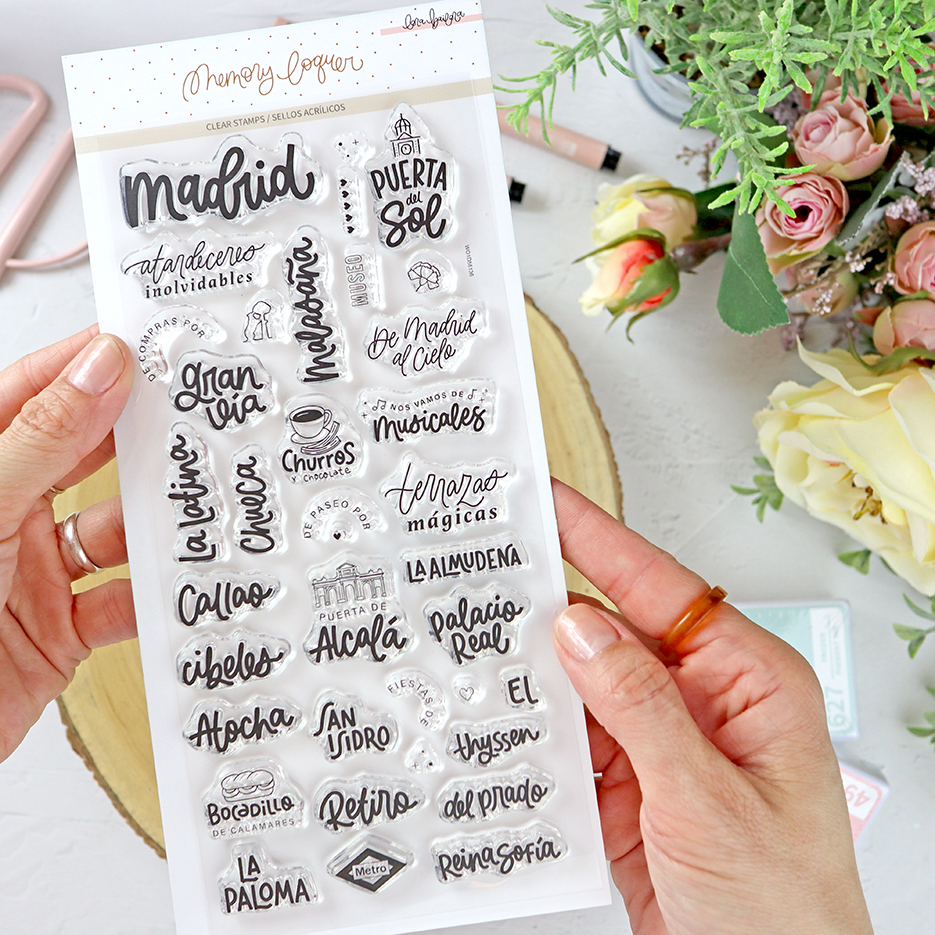 Lora Bailora
Memory loquer
CLEAR STAMPS / SELLOS ACRÍLICOS
Madrid
PUERTA
del
Sol
atardeceres
inolvidables
Malasaña
MUSEO
DE COMPRAS POR
gran
vía
De Madrid
al Cielo
NOS VAMOS DE
Musicales
La Latina
Chueca
Churros
Y CHOCOLATE
DE PASEO POR
terrazas
mágicas
LA ALMUDENA
Callao
PUERTA DE
Alcalá
Palacio
Real
cibeles
FIESTAS DE
EL
Atocha
SAN
ISIDRO
thyssen
BOCADILLO
DE CALAMARES
Retiro
del PRADO
LA
PALOMA
Metro
Reina Sofía
627
49